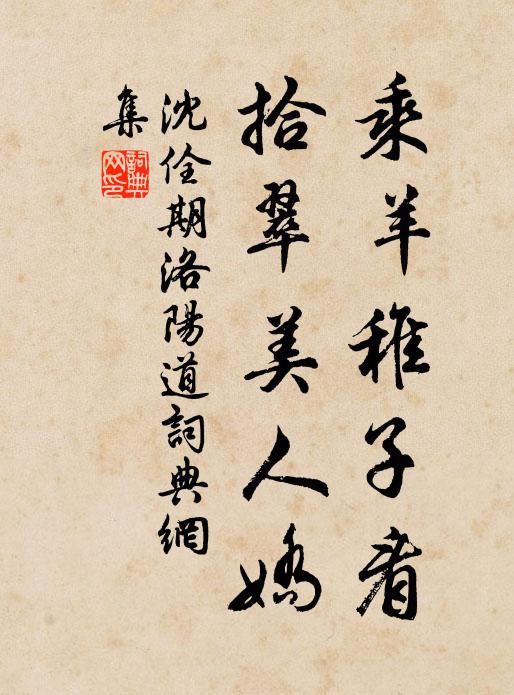 乘羊稚子看
拾翠美人嬌
沈佺期洛陽道詞典網
集
詞典網印